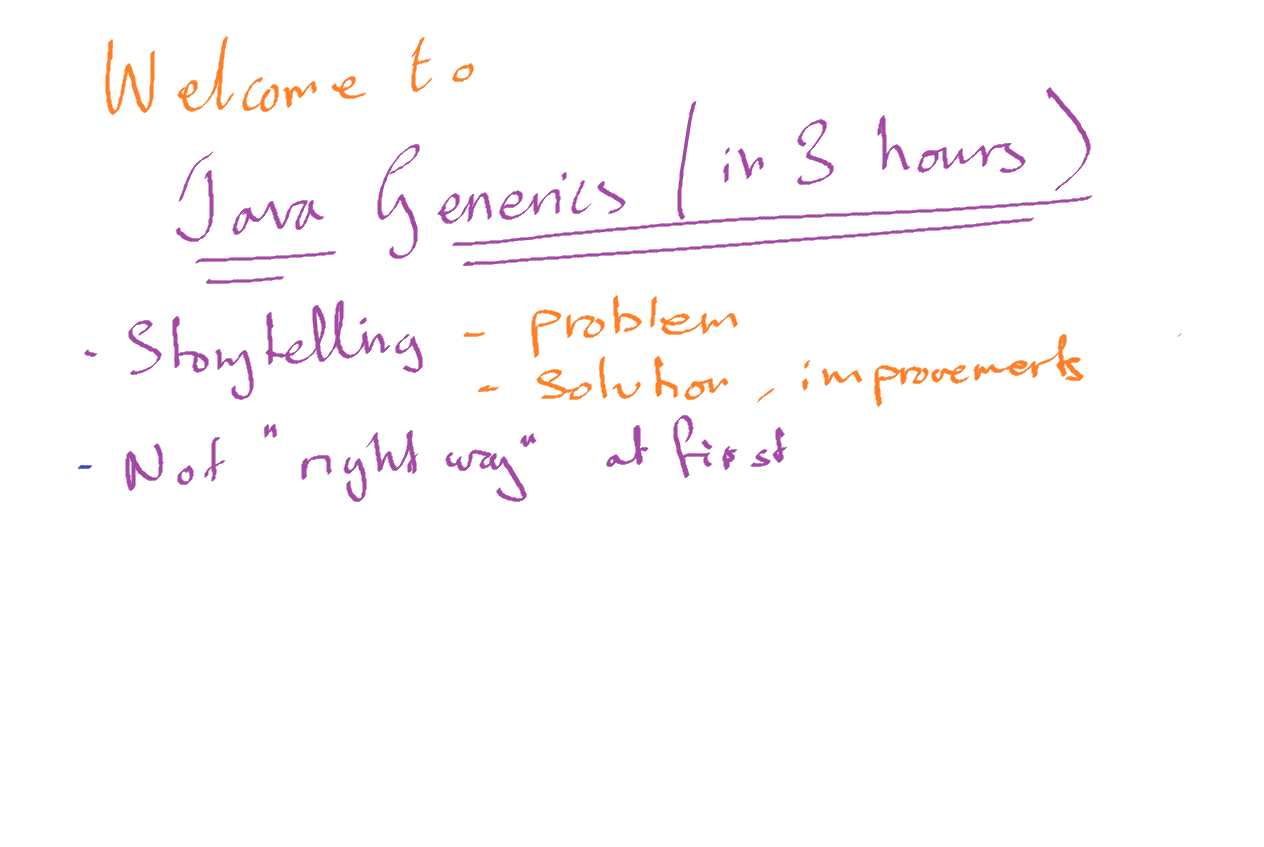 Welcome to
Java Generics (in 3 hours)
- Storytelling - problem
- solution, improvements
- Not "right way" at first